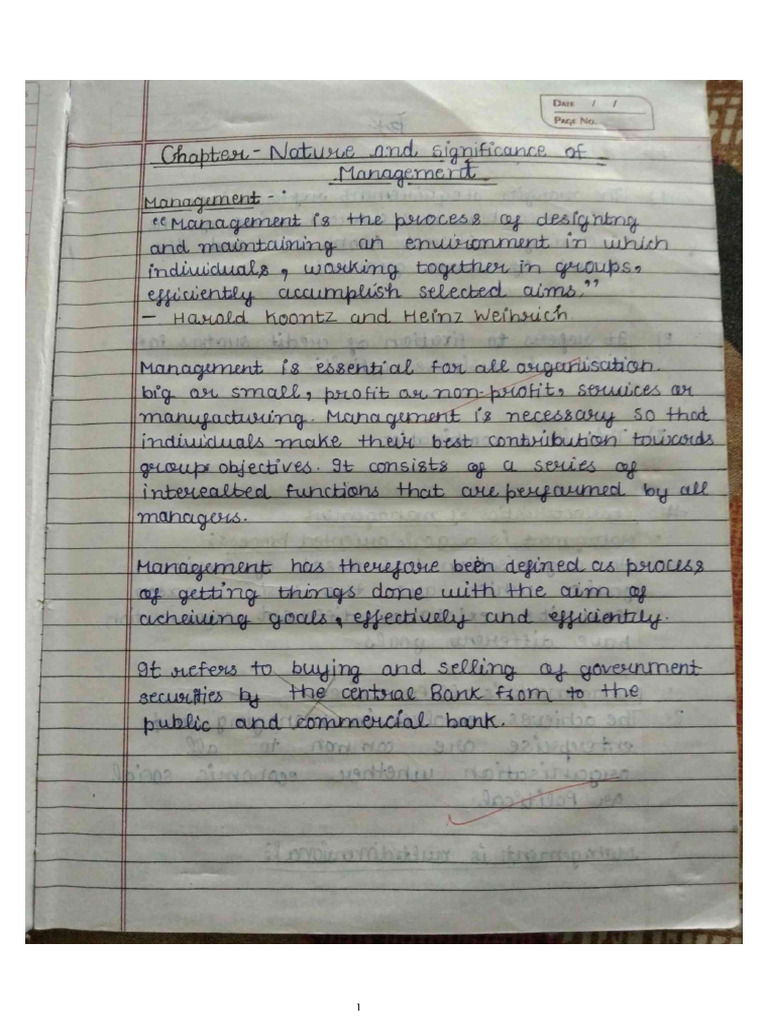 DATE / /
PAGE NO.
Chapter - Nature and significance of
Management
Management -
"Management is the process of designing
and maintaining an environment in which
individuals, working together in groups,
efficiently accumplish selected aims."
- Harold Koontz and Heinz Weihrich.
Management is essential for all organisation.
big or small, profit or non-profit, services or
manufacturing. Management is necessary so that
individuals make their best contribution towards
group objectives. It consists of a series of
interealted functions that are performed by all
managers.
Management has therefore been defined as process
of getting things done with the aim of
acheiving goals, effectively and efficiently.
It refers to buying and selling of government
securities by the central Bank from to the
public and commercial bank.
1